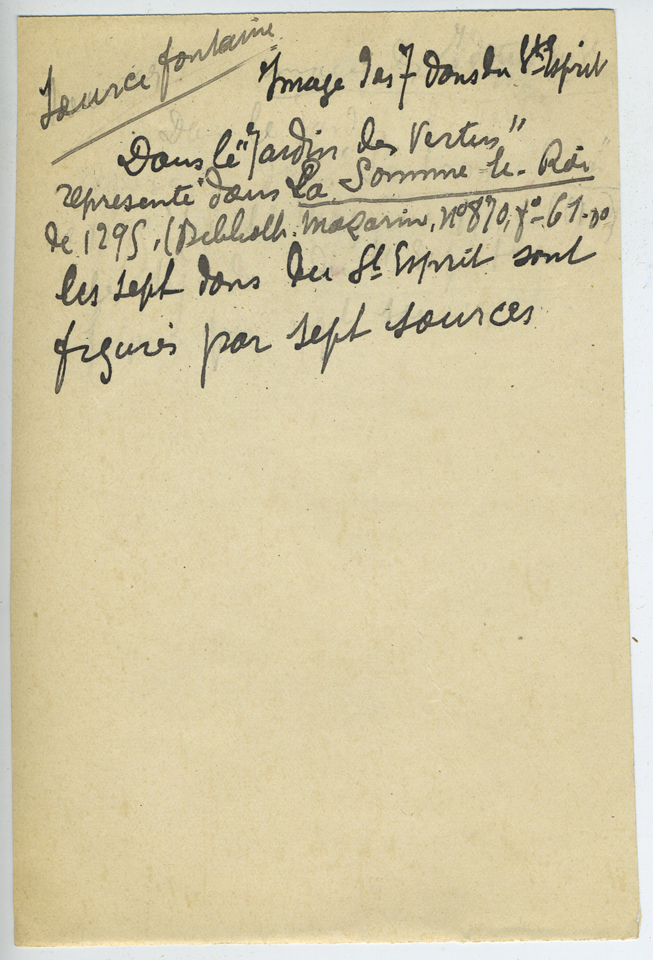 Source fontaine
Image des 7 dons du St Esprit
Dans le "Jardin des Vertus"
représenté dans La Somme le Roi
de 1295, (Biblioth. Mazarin, no 870, fo 61 vo
les sept dons du St Esprit sont
figurés par sept sources